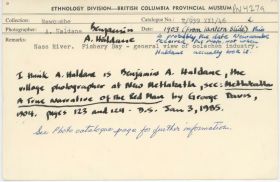 ETHNOLOGY DIVISION—BRITISH COLUMBIA PROVINCIAL MUSEUM PN4279
Collection: Newcombe Catalogue No.:
Photographer: A. Haldane. Benjamin A. Haldane Date: 1903 (from lantern slide) This is probably the date Newcombe
Nass River. Fishery Bay - general view of oolachon industry. Haldane actually took it.
I think A. Haldane is Benjamin A. Haldane, the
village photographer at New Metlakatla, see: Metlakatla
A True Narrative of the Red Man by George Davis,
1904, pages 123 and 124. - D.S. Jan 3, 1985.
See Photo catalogue page for further information.